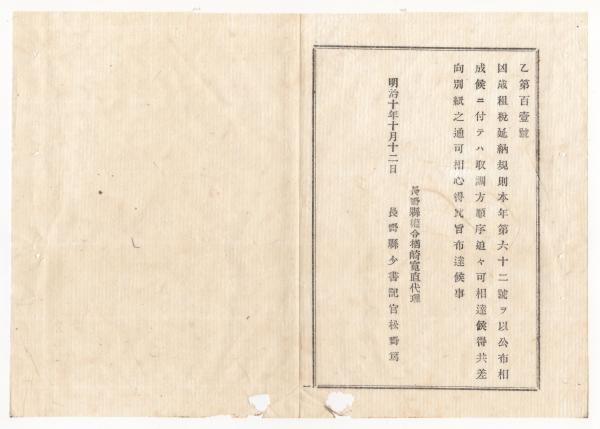 乙第百壹號
凶歳租税延納規則本年第六十二號ヲ以公布相
成候ニ付テハ取調方順序追々可相達候得共差
向別紙之通可相心得此旨布達候事
明治十年十月十二日
長野縣權令楢崎寛直代理
長野縣少書記官松野篤